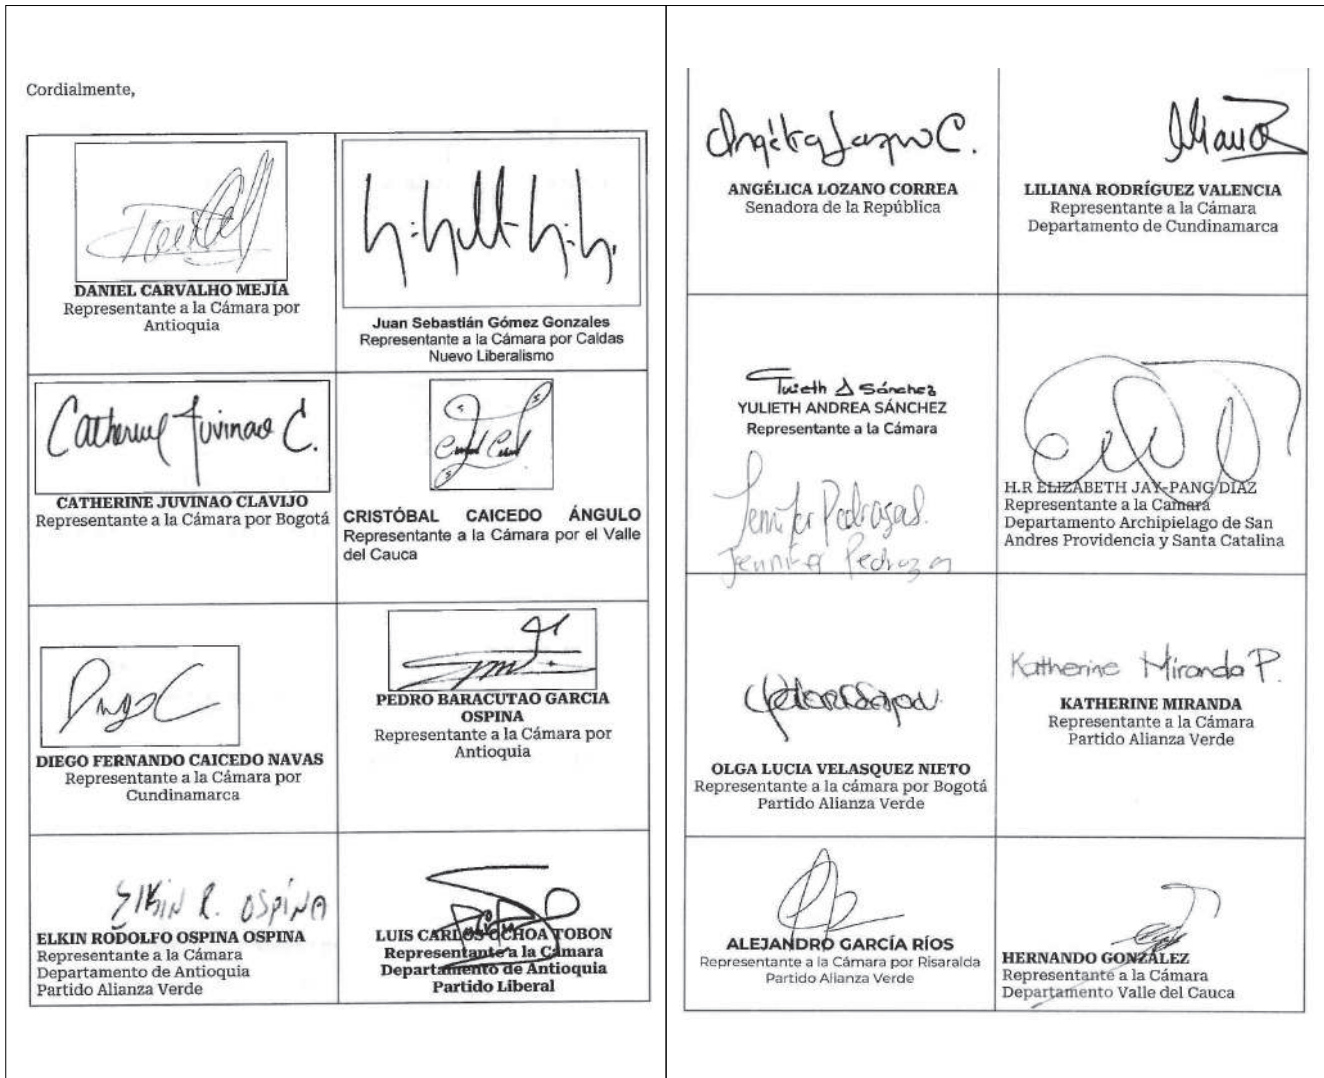 Cordialmente,
DANIEL CARVALHO MEJÍA
Representante a la Cámara por
Antioquia
Juan Sebastián Gómez Gonzales
Representante a la Cámara por Caldas
Nuevo Liberalismo
Catherine Juvinao C.
CATHERINE JUVINAO CLAVIJO
Representante a la Cámara por Bogotá
CRISTÓBAL CAICEDO ÁNGULO
Representante a la Cámara por el Valle
del Cauca
DIEGO FERNANDO CAICEDO NAVAS
Representante a la Cámara por
Cundinamarca
PEDRO BARACUTAO GARCIA
OSPINA
Representante a la Cámara por
Antioquia
Elkin R. OSPINA
ELKIN RODOLFO OSPINA OSPINA
Representante a la Cámara
Departamento de Antioquia
Partido Alianza Verde
LUIS CARLOS OCHOA TOBON
Representante a la Cámara
Departamento de Antioquia
Partido Liberal
Angélica Lozano C.
ANGÉLICA LOZANO CORREA
Senadora de la República
LILIANA RODRÍGUEZ VALENCIA
Representante a la Cámara
Departamento de Cundinamarca
Sánchez
YULIETH ANDREA SÁNCHEZ
Representante a la Cámara
Jennifer Pedraza S.
Jennifer Pedraza
H.R ELIZABETH JAY-PANG DIAZ
Representante a la Camara
Departamento Archipielago de San
Andres Providencia y Santa Catalina
OLGA LUCIA VELASQUEZ NIETO
Representante a la cámara por Bogotá
Partido Alianza Verde
Katherine Miranda P.
KATHERINE MIRANDA
Representante a la Cámara
Partido Alianza Verde
ALEJANDRO GARCÍA RÍOS
Representante a la Cámara por Risaralda
Partido Alianza Verde
HERNANDO GONZÁLEZ
Representante a la Cámara
Departamento Valle del Cauca